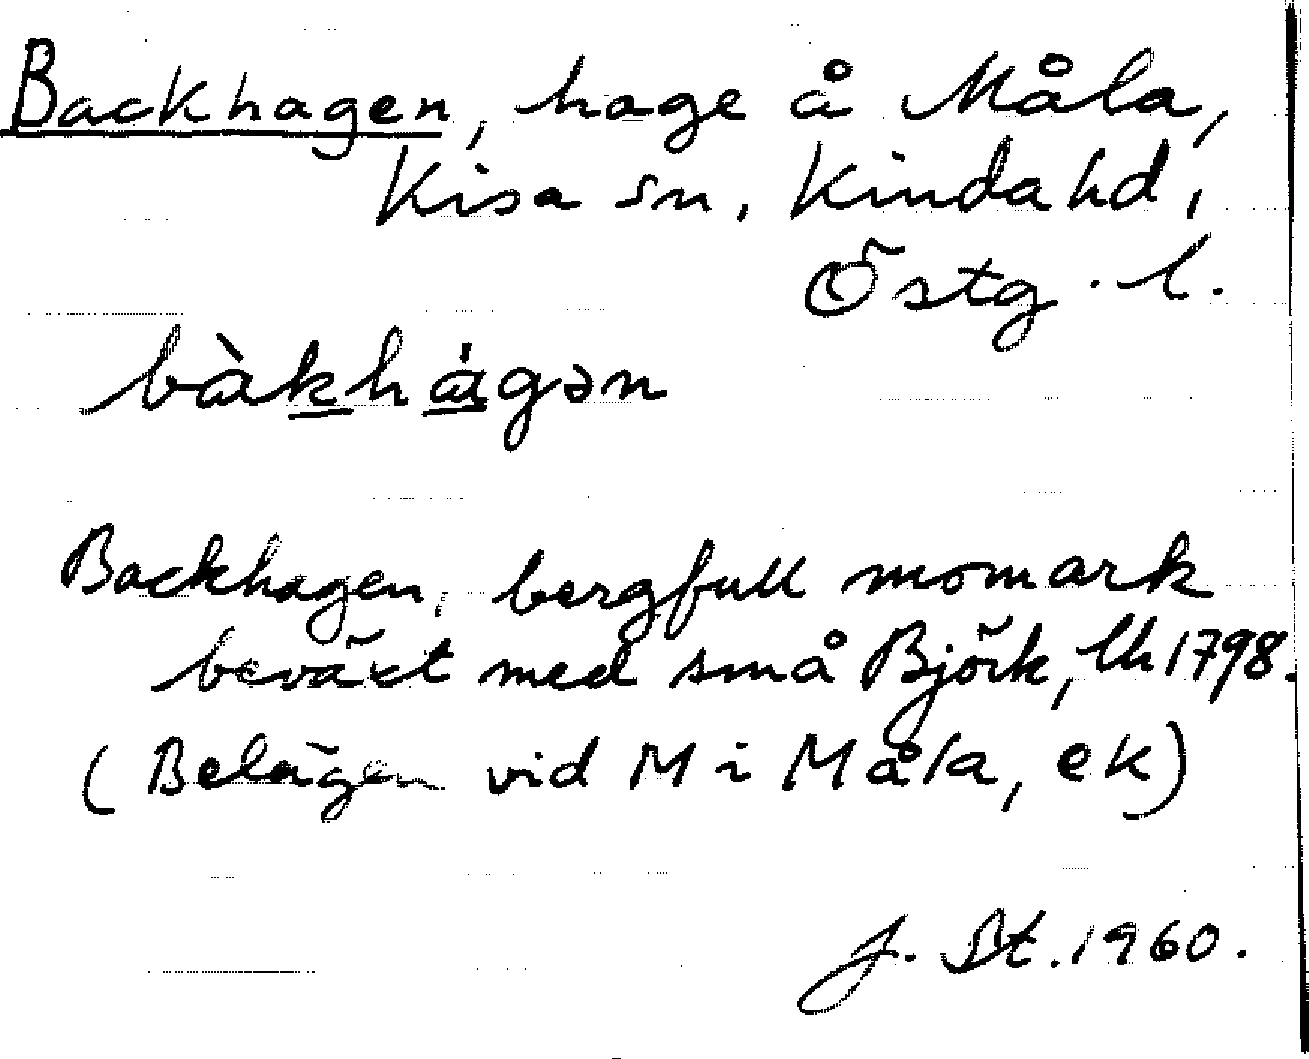 Backhagen, hage å Måla,
Kisa sn, Kinda hd,
Östg. l.
bàkhágən
Backhagen, bergfull momark
beväxt med små Björk, Uh 1798.
(Belägen vid M i Måla, ek)
J. St. 1960.